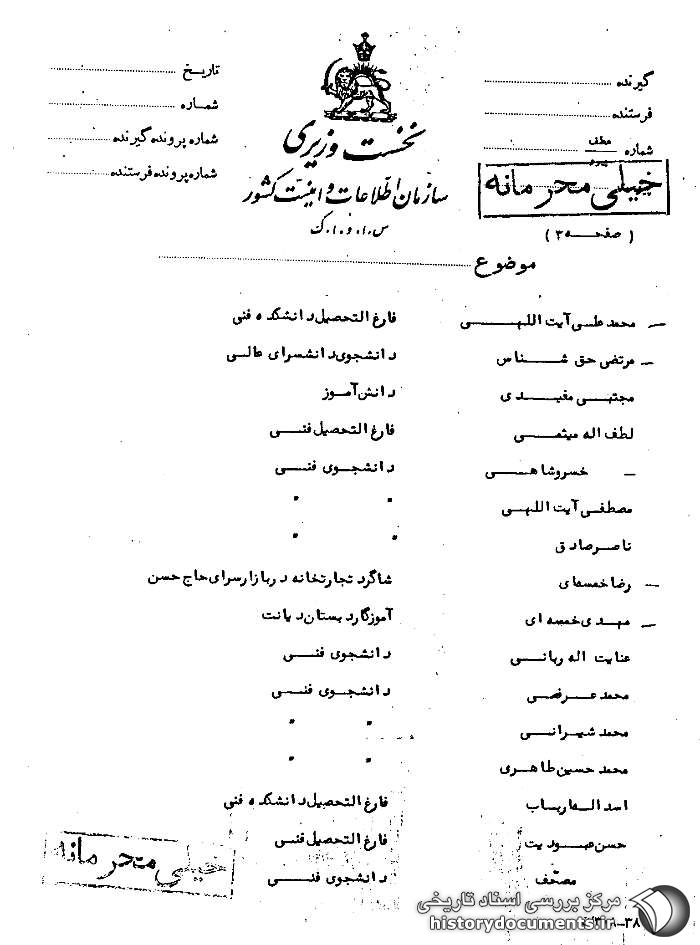 گیرنده
فرستنده
شماره
عطف
پیرو
تاریخ
شماره
شماره پرونده گیرنده
شماره پرونده فرستنده
نخست وزیری
سازمان اطلاعات و امنیت کشور
س.ا.و.ا.ک
خیلی محرمانه
( صفحه ۳ )
موضوع
— محمد علی آیت اللهی فارغ التحصیل دانشکده فنی
— مرتضی حق شناس دانشجوی دانشسرای عالی
مجتبی مفیدی دانش آموز
لطف اله میثمی فارغ التحصیل فنی
— خسروشاهی دانشجوی فنی
مصطفی آیت اللهی " "
ناصر صادق " "
— رضا خمسه‌ای شاگرد تجارتخانه در بازار سرای حاج حسن
— مهدی خمسه ای آموزگار دبستان دیانت
عنایت اله ربانی دانشجوی فنی
محمد عرضی دانشجوی فنی
محمد شیرانی " "
محمد حسین طاهری " "
اسد اله فارغ التحصیل دانشکده فنی
حسن فارغ التحصیل فنی
مصحف دانشجوی فنی
خیلی محرمانه
مرکز بررسی اسناد تاریخی
historydocuments.ir